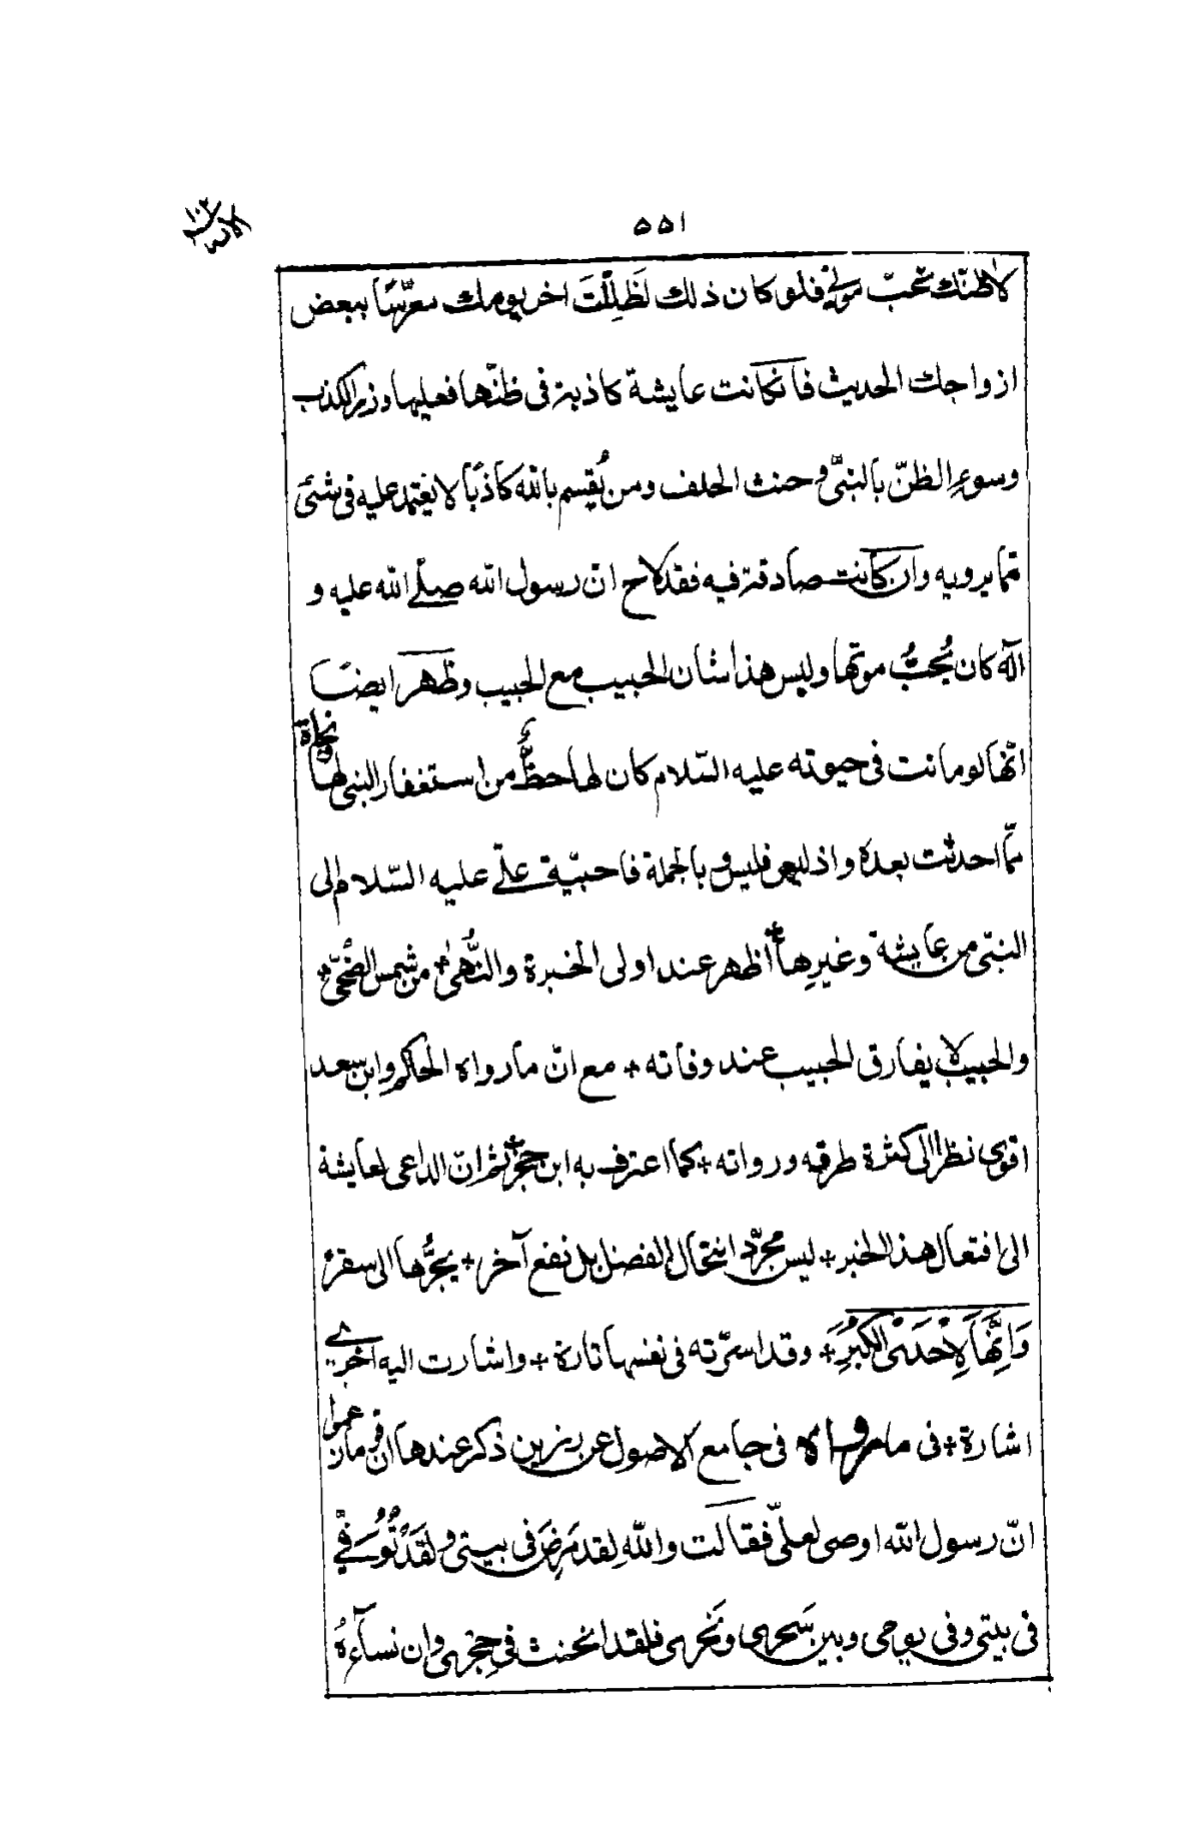 ٥٥١
لاظنّك تحبّ موتي فلو كان ذلك لَظَلِلْتَ اخر يومك معرّسًا ببعض
ازواجك الحديث فان كانت عايشة كاذبة فى ظنّها فعليها وزر الكذب
وسوءِ الظنّ بالنبىّ و حنث الحلف ومن يُقسِم بالله كاذبًا لا يعتمد عليه فى شئ
مّما يرويه وان كانت صادقة فيه فقد لاح انّ رسول الله صلى الله عليه و
آله كان يُحبُّ موتها وليس هذا شان الحبيب مع الحبيب وظهر ايضا
انّها لو ماتت فى حيوته عليه السّلام كان لها حظٌّ من استغفار النبى لها و نجاة
مّما احدثت بعده واذ ليس فليس و بالجملة فاحبّية علىّ عليه السّلام الى
النبىّ من عايشة وغيرِها+ اظهر عند اولى الخبرة والنُّهىٰ+ من شمس الضُّحىٰ+
والحبيب لا يفارق الحبيب عند وفاته + مع انّ ما رواه الحاكم وابن سعد
اقوى نظرا الى كثرة طرقه ورواته + كما اعترف به ابن حجر+ ثم انّ الداعى لعايشة
الى افتعال هذا الخبر+ ليس مجرّد انتحال الفضل بل نفع آخر + يجُرُّها الى سقر+
وَاِنَّهَا لَاِحْدَى الْكُبَرِ+ وقد اسرّته فى نفسها تارة + واشارت اليه اخرى
اشارة + فى ما رواه فى جامع الاصول عن رزين ذكر عندها ان قوما زعموا
انّ رسول الله اوصى لعلىّ فقالت واللهِ لقد مَرِضَ فى بيتى ولقد تُوُفِّىَ
فى بيتى وفى يومى وبين سَحرى ونَحرى فلقد انخنث فى حِجرى وان نساءهُ